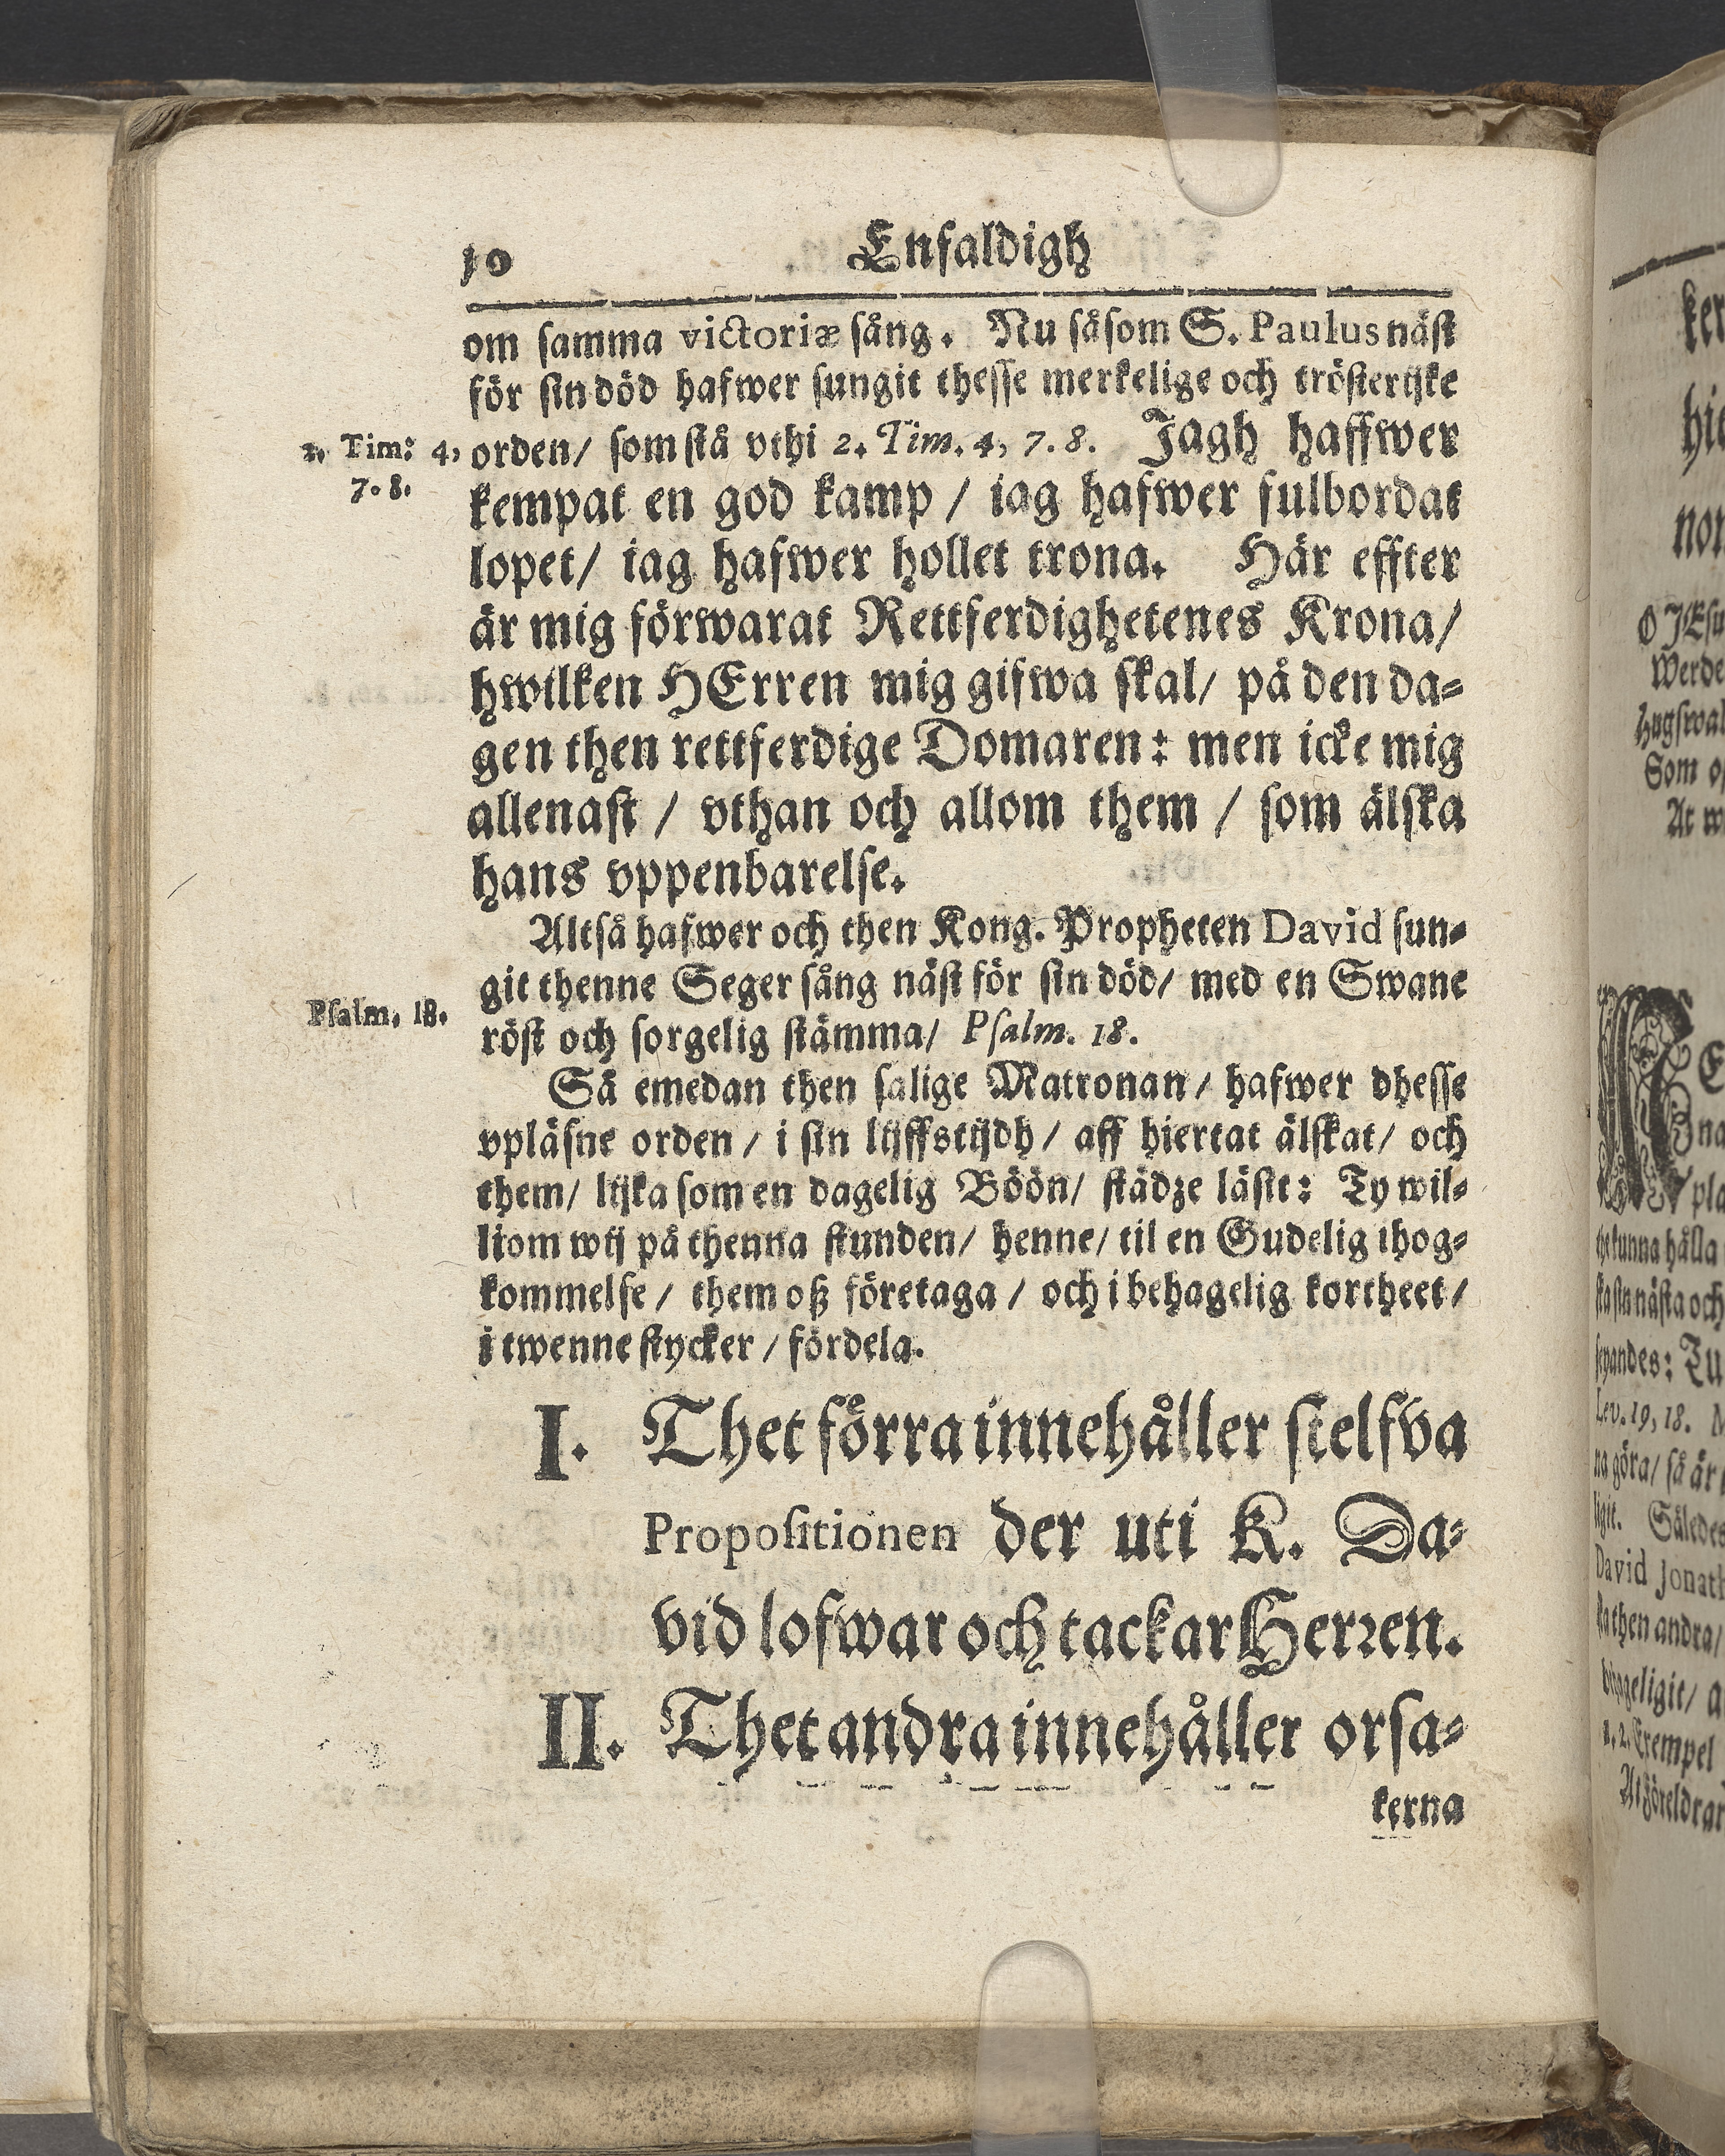 10 Enfaldigh
om samma victoriæ sång. Nu såsom S. Paulus näst
för sin död hafwer sungit thesse merkelige och trösterijke
2. Tim: 4, 7. 8.
orden/ som stå vthi 2. Tim. 4, 7. 8. Jagh haffwer
kempat en god kamp / iag hafwer fulbordat
lopet/ iag hafwer hollet trona. Här effter
är mig förwarat Rettferdighetenes Krona/
hwilken HErren mig gifwa skal/ på den da-
gen then rettferdige Domaren: men icke mig
allenast / vthan och allom them / som älska
hans vppenbarelse.
Altså hafwer och then Kong. Propheten David sun-
git thenne Seger sång näst för sin död/ med en Swane
Psalm. 18.
röst och sorgelig stämma/ Psalm. 18.
Så emedan then salige Matronan/ hafwer dhesse
vpläsne orden / i sin lijffstijdh / aff hiertat älskat/ och
them/ lijka som en dagelig Böön/ städze läsit: Ty wil-
liom wij på thenna stunden/ henne/ til en Gudelig ihog-
kommelse / them oß företaga / och i behagelig kortheet/
i twenne stycker / fördela.
I. Thet förra innehåller sielfva
Propositionen der uti K. Da-
vid lofwar och tackar Herren.
II. Thet andra innehåller orsa-
kerna